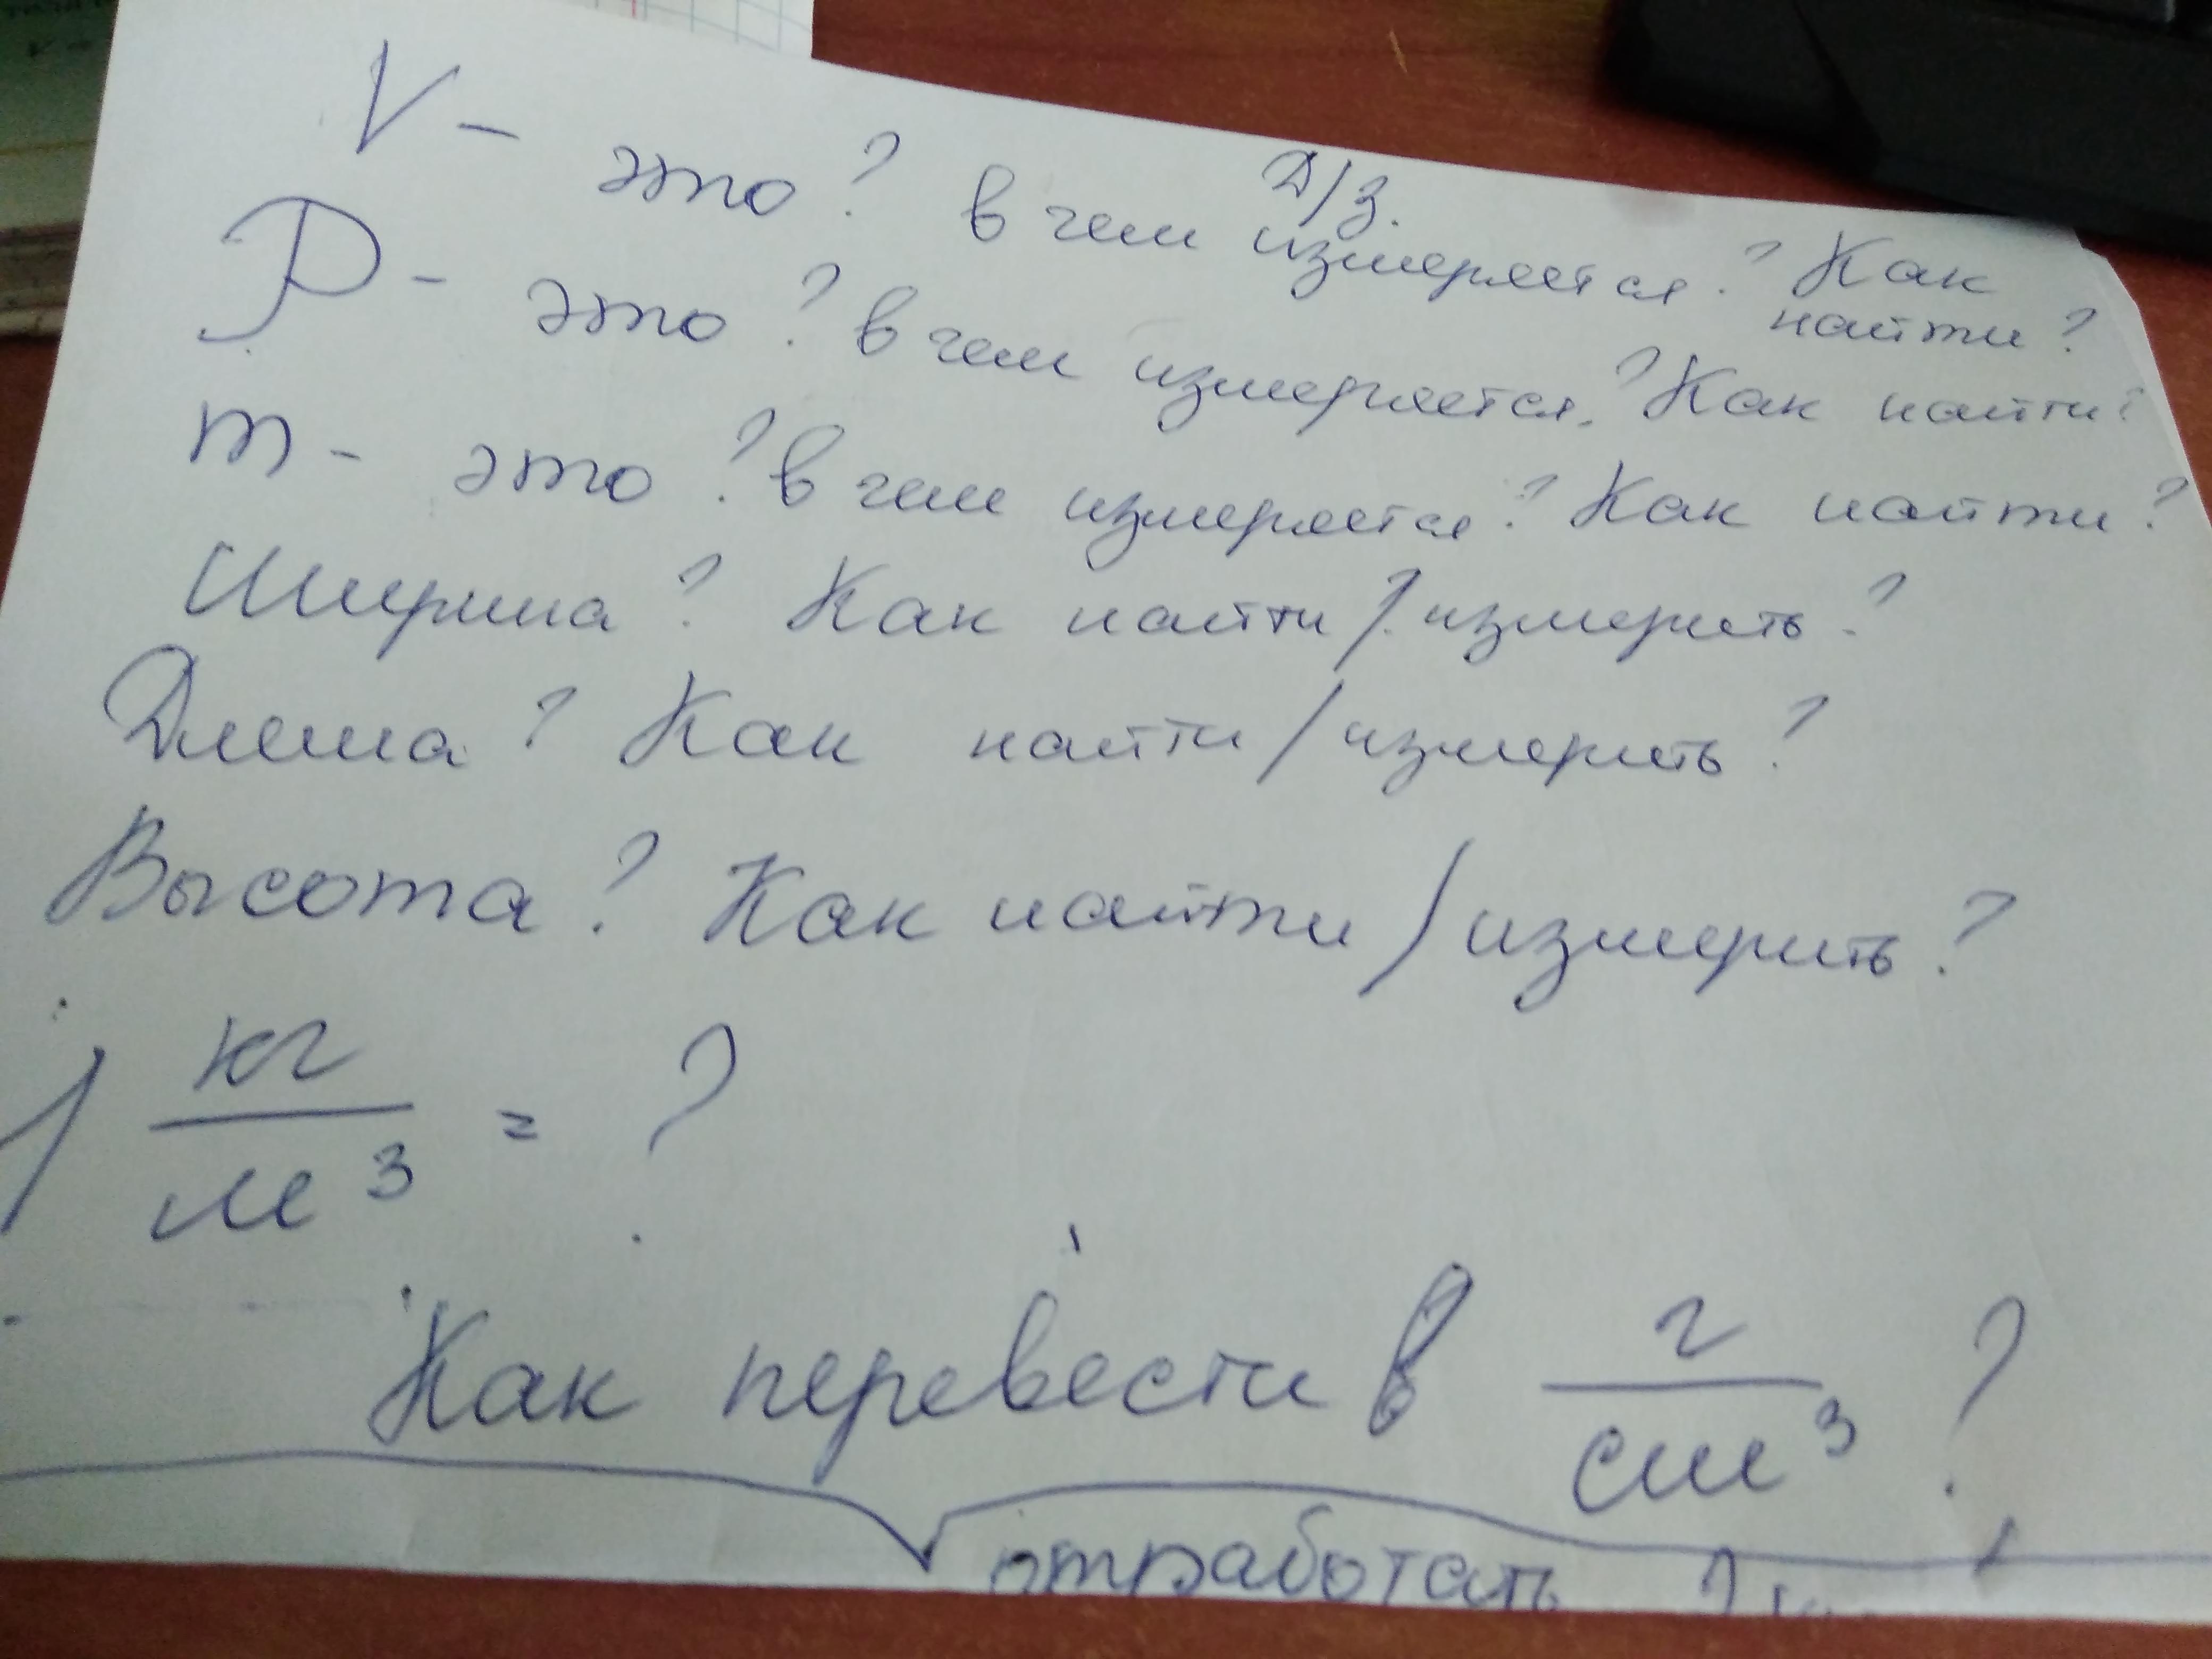 Д/З.
V - это? в чем измеряется? Как найти?
P - это? в чем измеряется? Как найти?
m - это? в чем измеряется? Как найти?
Ширина? Как найти/измерить?
Длина? Как найти/измерить?
Высота? Как найти/измерить?
1 кг/м³ = ?
Как перевести в г/см³?
отработать